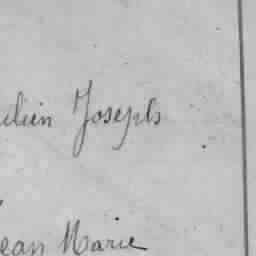 ulien Joseph
ean Marie